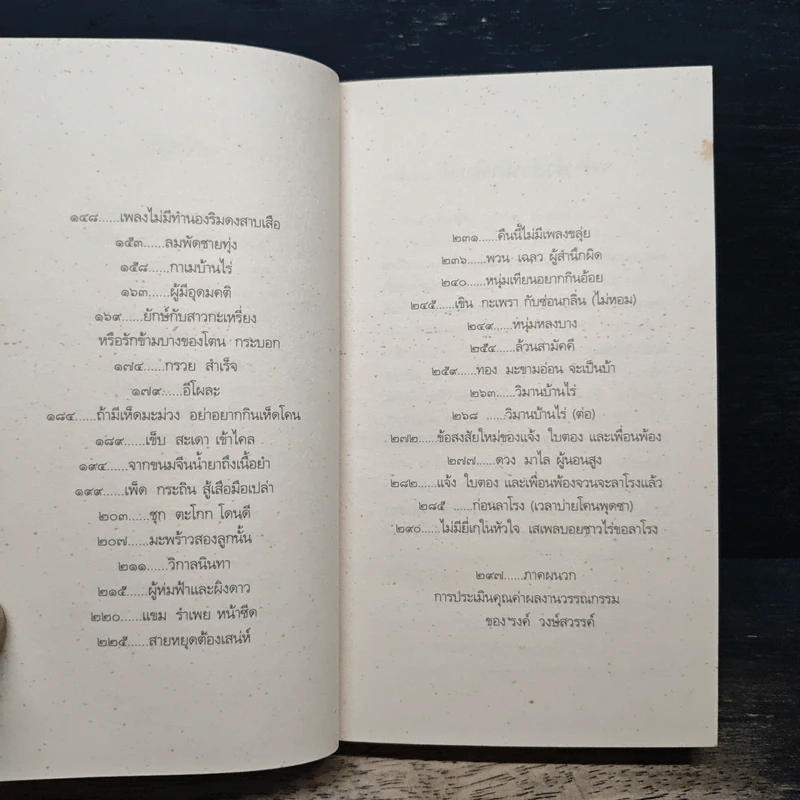 ๑๔๘......เพลงไม่มีทำนองริมดงสาบเสือ
๑๕๓......ลมพัดชายทุ่ง
๑๕๘......กาเมบ้านไร่
๑๖๓......ผู้มีอุดมคติ
๑๖๙......ยักษ์กับสาวกะเหรี่ยง
หรือรักข้ามบางของโตน กระบอก
๑๗๔......กรวย สำเร็จ
๑๗๙......อีโผละ
๑๘๔......ถ้ามีเห็ดมะม่วง อย่าอยากกินเห็ดโคน
๑๘๙......เข็บ สะเดา เข้าไคล
๑๙๔......จากขนมจีนน้ำยาถึงเนื้อยำ
๑๙๙......เพ็ด กระถิน สู้เสือมือเปล่า
๒๐๓......ซุก ตะโกก โดนดี
๒๐๗......มะพร้าวสองลูกนั้น
๒๑๑......วิกาลนินทา
๒๑๕......ผู้ห่มฟ้าและผิงดาว
๒๒๐......แขม รำเพย หน้าซีด
๒๒๕......สายหยุดต้องเสน่ห์
๒๓๑......คืนนี้ไม่มีเพลงขลุ่ย
๒๓๖......พวน เฉลว ผู้สำนึกผิด
๒๔๐......หนุ่มเทียนอยากกินอ้อย
๒๔๕......เชิน กะเพรา กับซ่อนกลิ่น (ไม่หอม)
๒๔๙......หนุ่มหลงบาง
๒๕๔......ล้วนสามัคคี
๒๕๙......ทอง มะขามอ่อน จะเป็นบ้า
๒๖๓......วิมานบ้านไร่
๒๖๘ ......วิมานบ้านไร่ (ต่อ)
๒๗๒......ข้อสงสัยใหม่ของแจ้ง ใบตอง และเพื่อนพ้อง
๒๗๗......ดวง มาไล ผู้นอนสูง
๒๘๒......แจ้ง ใบตอง และเพื่อนพ้องจวนจะลาโรงแล้ว
๒๘๕ ......ก่อนลาโรง (เวลาบ่ายโคนพุดซา)
๒๙๐......ไม่มียี่เกในหัวใจ เสเพลบอยชาวไร่ขอลาโรง
๒๙๗......ภาคผนวก
การประเมินคุณค่าผลงานวรรณกรรม
ของ 'รงค์ วงษ์สวรรค์